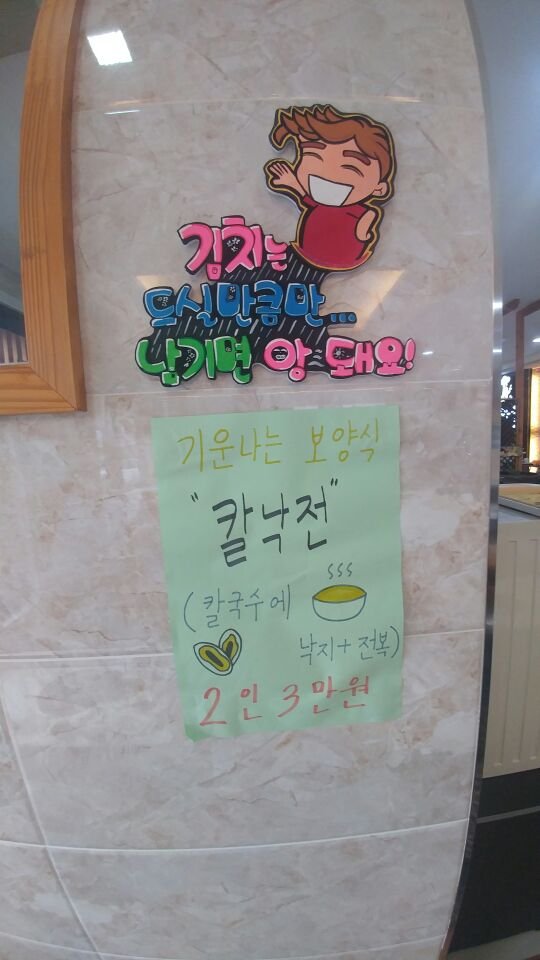 김치는
드실만큼만...
남기면 안돼요!
기운나는 보양식
"칼낙전"
(칼국수에
낙지+전복)
2인 3만원